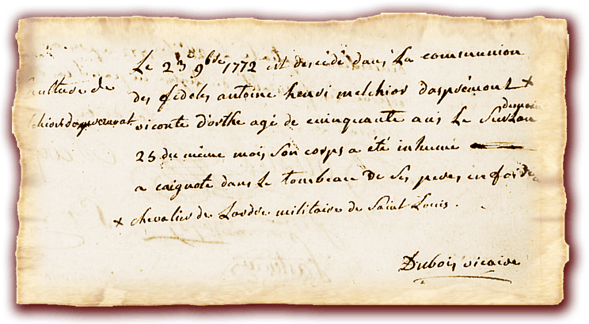 Le 23 9bre 1772 est descédé dans la communion
des fideles antoine henri melchior daspremont +
viconte d'orthe agé de cuinquante ans le
25 du même mois son corps a été inhumé
a caignote dans le tombeau de ses peres en foi de
+ chevalier de Lordre militaire de Saint Louis.
Dubois vicaire